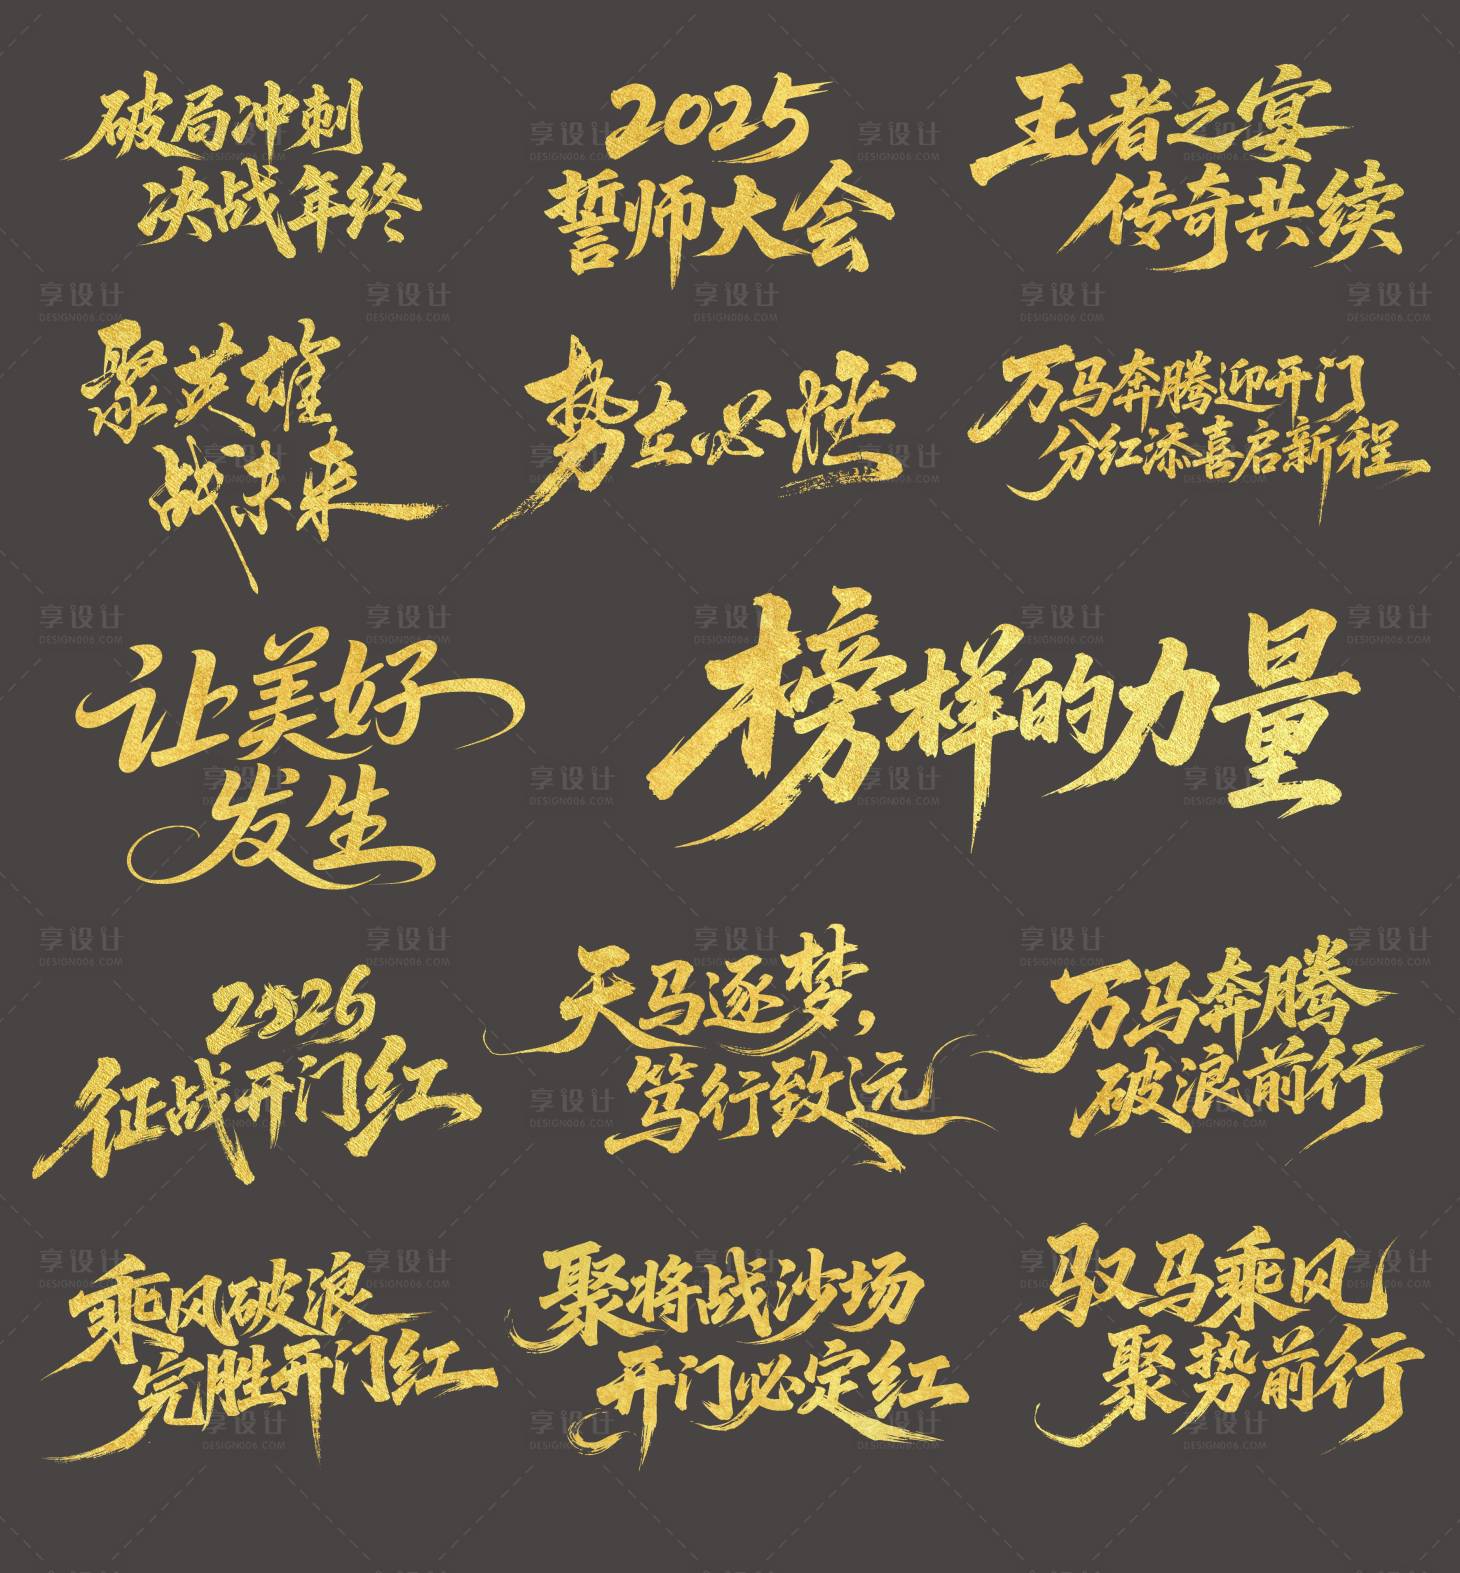 破局冲刺
决战年终
2025
誓师大会
王者之宴
传奇共续
聚英雄
战未来
势立必燃
万马奔腾迎开门
分红添喜启新程
让美好
发生
榜样的力量
2026
征战开门红
天马逐梦，
笃行致远
万马奔腾
破浪前行
乘风破浪
完胜开门红
聚将战沙场
开门必定红
驭马乘风
聚势前行
享设计
DESIGN006.COM